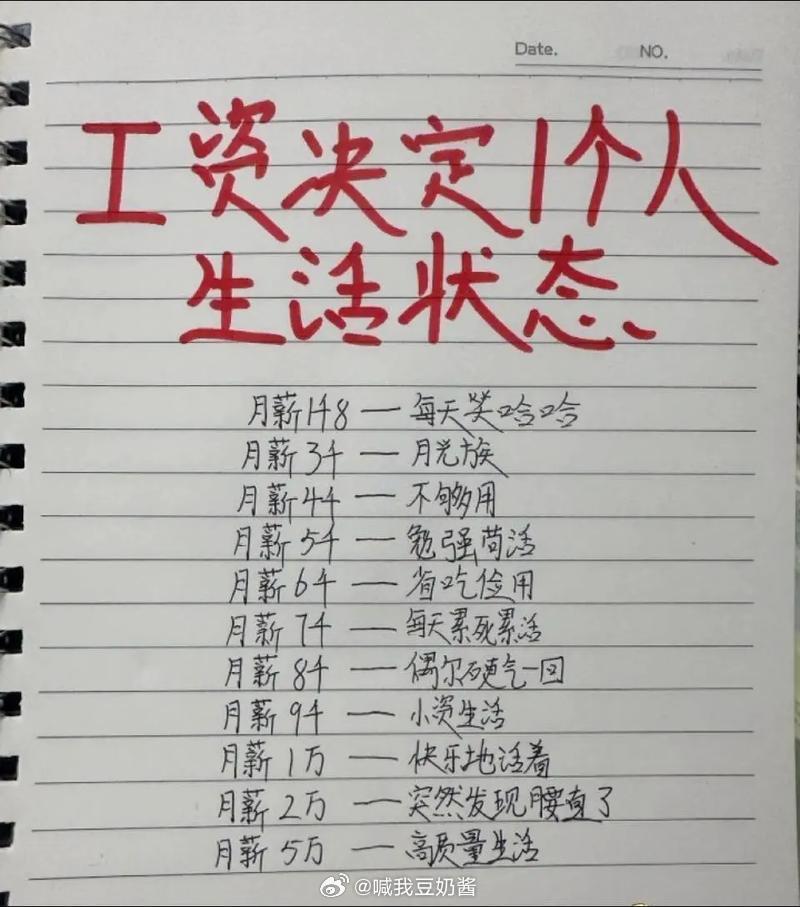 Date. NO.
工资决定1个人
生活状态
月薪1千8 — 每天笑哈哈
月薪3千 — 月光族
月薪4千 — 不够用
月薪5千 — 勉强苟活
月薪6千 — 省吃俭用
月薪7千 — 每天累死累活
月薪8千 — 偶尔硬气一回
月薪9千 — 小资生活
月薪1万 — 快乐地活着
月薪2万 — 突然发现腰直了
月薪5万 — 高质量生活
@喊我豆奶酱